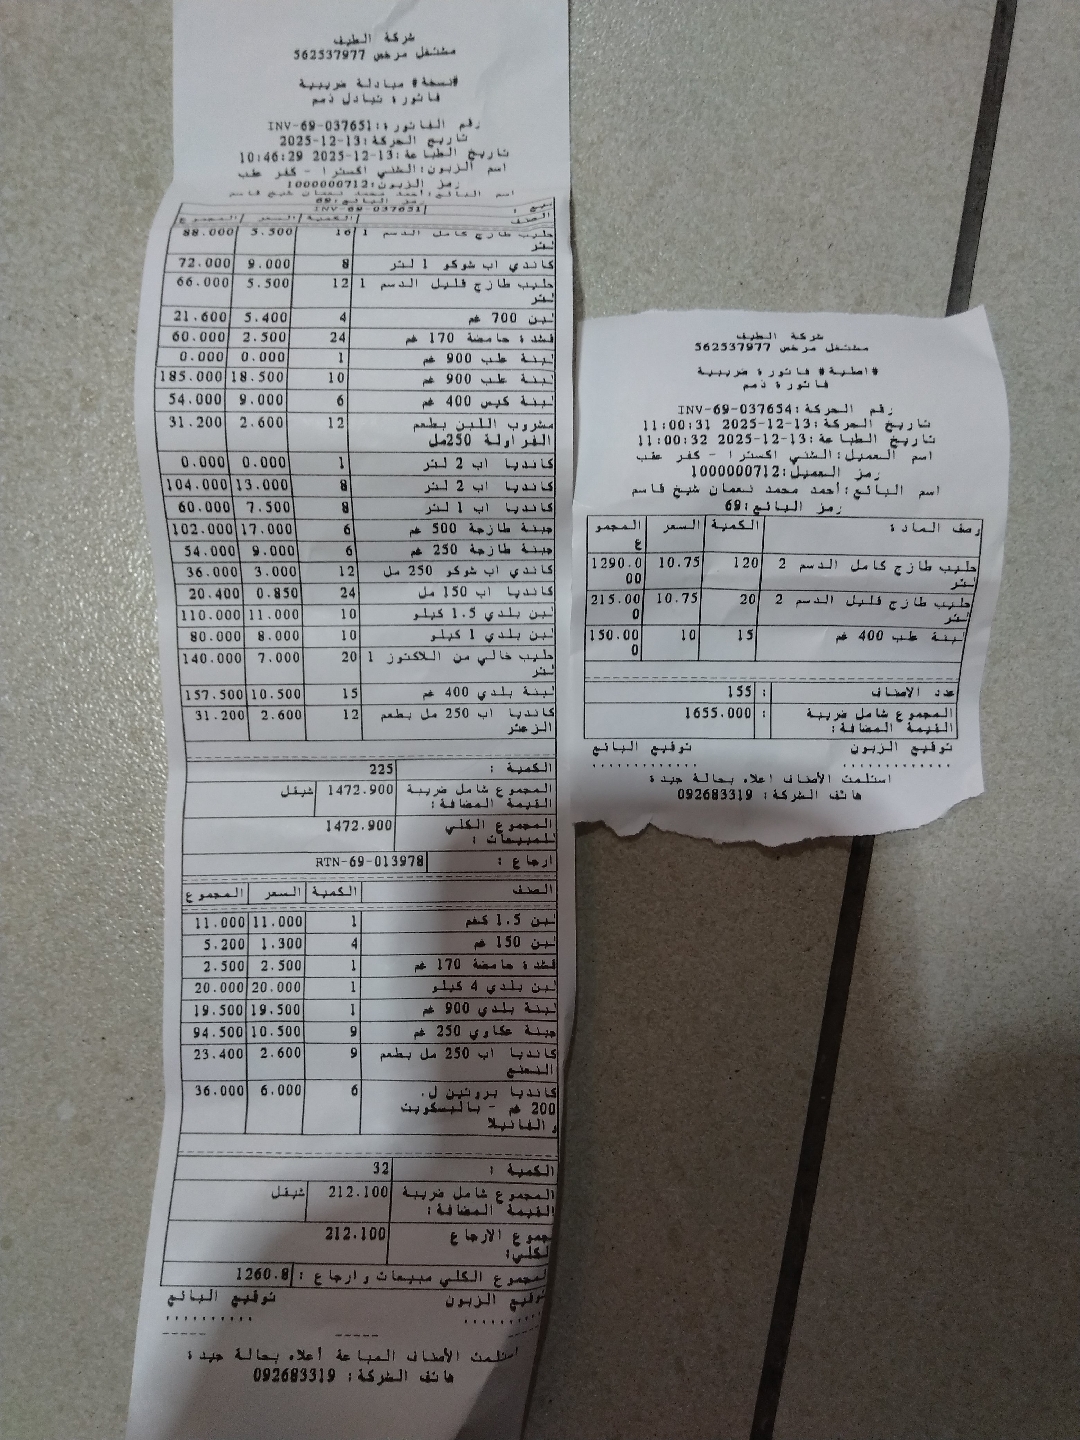 شركة الطيف
مشتغل مرخص 562537977
#نسخة# مبادلة ضريبية
فاتورة تبادل ذمم
رقم الفاتورة: INV-69-037651
تاريخ الحركة: 2025-12-13
تاريخ الطباعة: 2025-12-13 10:46:29
اسم الزبون: الشني اكسترا - كفر عقب
رمز الزبون: 1000000712
اسم البائع: أحمد محمد نعمان شيخ قاسم
رمز البائع: 69
بيع : INV-69-037651
الصنف الكمية السعر المجموع
حليب طازج كامل الدسم 1 لتر 16 5.500 88.000
كاندي اب شوكو 1 لتر 8 9.000 72.000
حليب طازج قليل الدسم 1 لتر 12 5.500 66.000
لبن 700 غم 4 5.400 21.600
قشدة حامضة 170 غم 24 2.500 60.000
لبنة علب 900 غم 1 0.000 0.000
لبنة علب 900 غم 10 18.500 185.000
لبنة كيس 400 غم 6 9.000 54.000
مشروب اللبن بطعم الفراولة 250مل 12 2.600 31.200
كانديا اب 2 لتر 1 0.000 0.000
كانديا اب 2 لتر 8 13.000 104.000
كانديا اب 1 لتر 8 7.500 60.000
جبنة طازجة 500 غم 6 17.000 102.000
جبنة طازجة 250 غم 6 9.000 54.000
كاندي اب شوكو 250 مل 12 3.000 36.000
كانديا اب 150 مل 24 0.850 20.400
لبن بلدي 1.5 كيلو 10 11.000 110.000
لبن بلدي 1 كيلو 10 8.000 80.000
حليب خالي من اللاكتوز 1 لتر 20 7.000 140.000
لبنة بلدي 400 غم 15 10.500 157.500
كانديا اب 250 مل بطعم الزعتر 12 2.600 31.200
الكمية : 225
المجموع شامل ضريبة القيمة المضافة: 1472.900 شيقل
المجموع الكلي للمبيعات : 1472.900
ارجاع : RTN-69-013978
الصنف الكمية السعر المجموع
لبن 1.5 كغم 1 11.000 11.000
لبن 150 غم 4 1.300 5.200
قشدة حامضة 170 غم 1 2.500 2.500
لبن بلدي 4 كيلو 1 20.000 20.000
لبنة بلدي 900 غم 1 19.500 19.500
جبنة عكاوي 250 غم 9 10.500 94.500
كانديا اب 250 مل بطعم النعنع 9 2.600 23.400
كانديا بروتين ل. 200 غم - بالبسكويت والفانيلا 6 6.000 36.000
الكمية : 32
المجموع شامل ضريبة القيمة المضافة: 212.100 شيقل
مجموع الارجاع الكلي: 212.100
المجموع الكلي مبيعات وارجاع : 1260.8
توقيع الزبون توقيع البائع
استلمت الأصناف المباعة أعلاه بحالة جيدة
هاتف الشركة: 092683319
شركة الطيف
مشتغل مرخص 562537977
#اصلية# فاتورة ضريبية
فاتورة ذمم
رقم الحركة: INV-69-037654
تاريخ الحركة: 2025-12-13 11:00:31
تاريخ الطباعة: 2025-12-13 11:00:32
اسم العميل: الشني اكسترا - كفر عقب
رمز العميل: 1000000712
اسم البائع: أحمد محمد نعمان شيخ قاسم
رمز البائع: 69
وصف المادة الكمية السعر المجموع
حليب طازج كامل الدسم 2 لتر 120 10.75 1290.000
حليب طازج قليل الدسم 2 لتر 20 10.75 215.000
لبنة علب 400 غم 15 10 150.000
عدد الاصناف : 155
المجموع شامل ضريبة القيمة المضافة: : 1655.000
توقيع الزبون توقيع البائع
استلمت الأصناف اعلاه بحالة جيدة
هاتف الشركة: 092683319